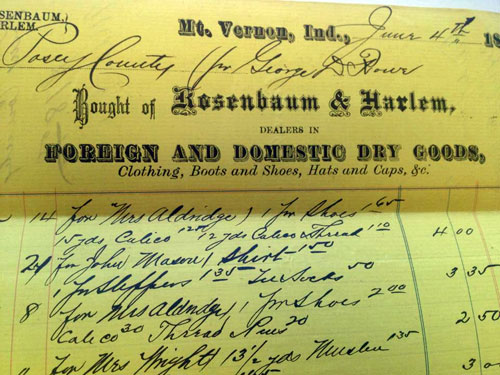 ROSENBAUM,
HARLEM.
Mt. Vernon, Ind., June 4th 18
Posey County for George D Rowe
Bought of Rosenbaum & Harlem,
DEALERS IN
FOREIGN AND DOMESTIC DRY GOODS,
Clothing, Boots and Shoes, Hats and Caps, &c.
14 for Mrs Aldridge 1 pr Shoes 1 65
15 yds Calico 2 yds Calico & Thread 1 10 4 00
24 for John Mason 1 Shirt 1 50
1 pr Slippers 1 35 Socks 50 3 35
8 for Mrs Aldridge 1 pr Shoes 2 00
Calico 30 Thread Pins 20 2 50
11 for Mrs Wright 13 1/2 yds Muslin 1 35